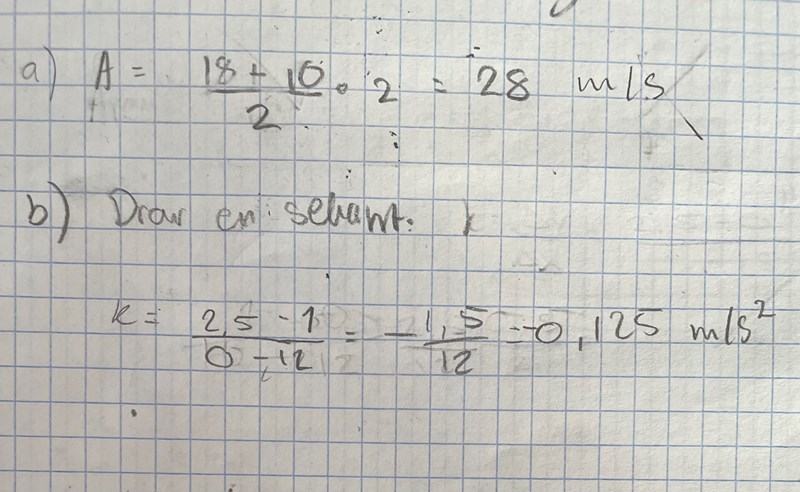 a) A = (18 + 10)/2 · 2 = 28 m/s
b) Drar en sekant.
k = (2,5 - 1)/(0 - 12) = -1,5/12 = -0,125 m/s²